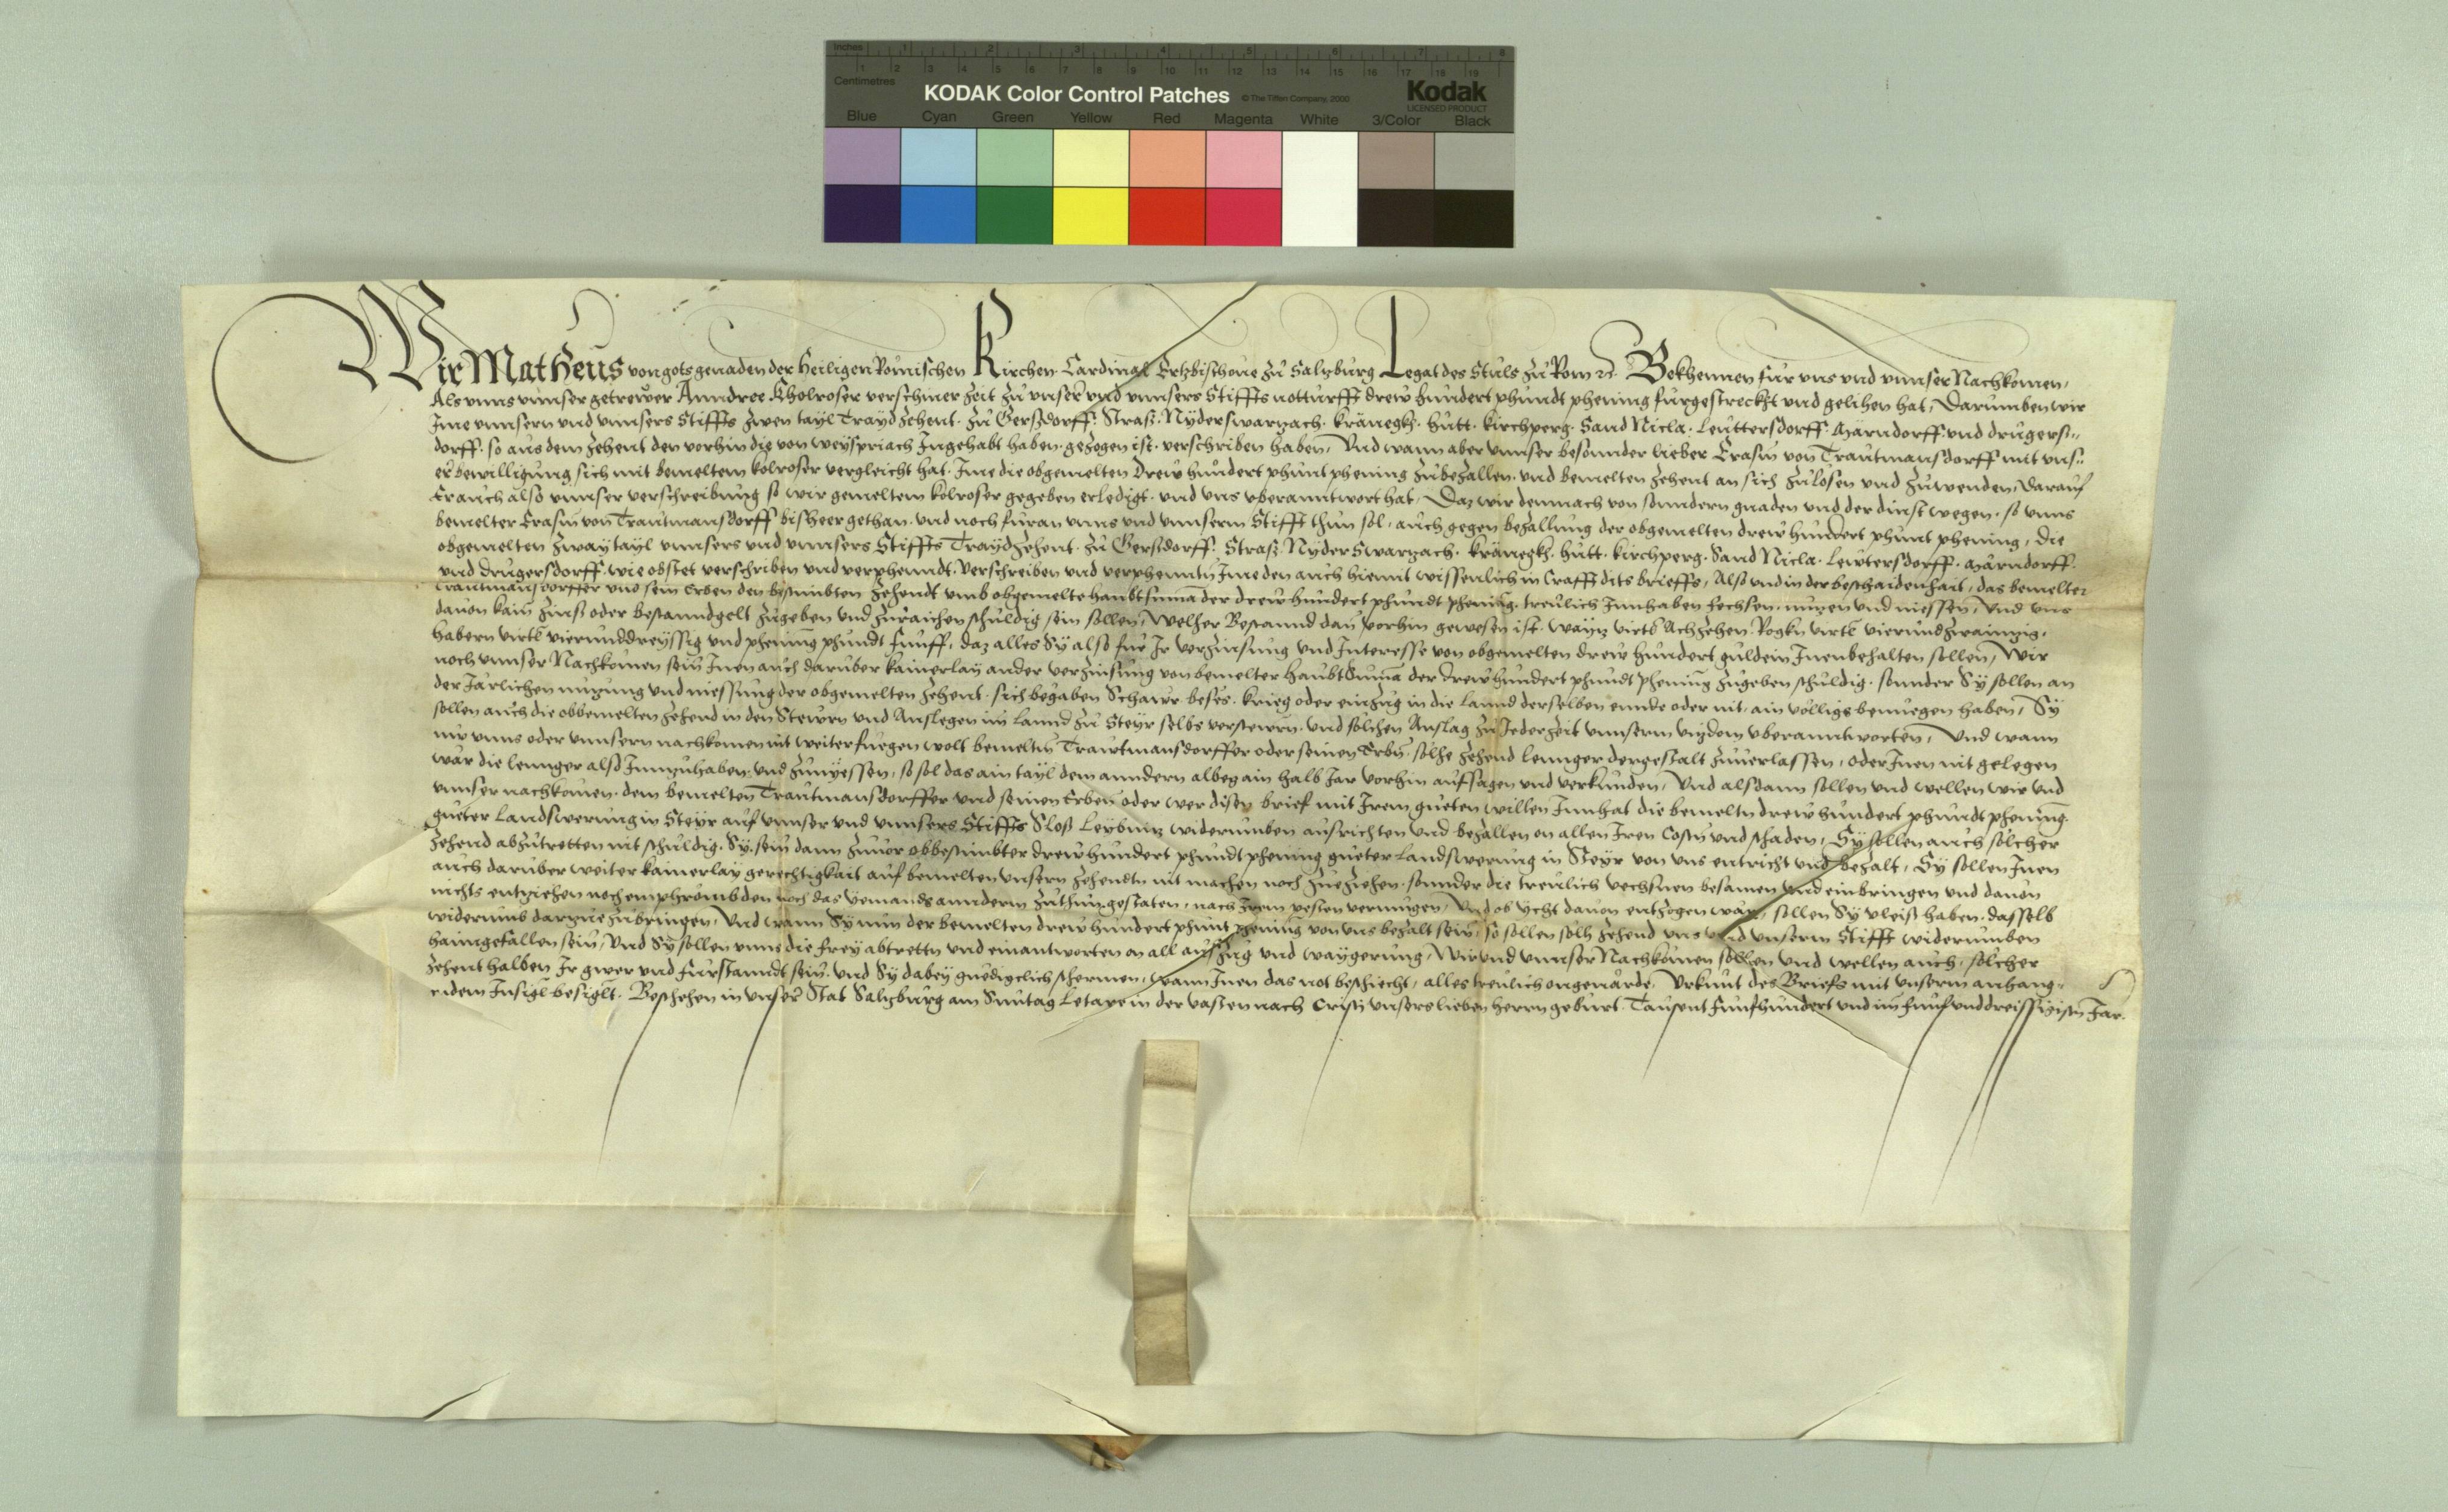 Inches 1 2 3 4 5 6 7 8
Centimetres 1 2 3 4 5 6 7 8 9 10 11 12 13 14 15 16 17 18 19
KODAK Color Control Patches © The Tiffen Company, 2000 Kodak
LICENSED PRODUCT
Blue Cyan Green Yellow Red Magenta White 3/Color Black
Wir Matheus von gots genaden der Heiligen Römischen Kirchen Cardinal Ertzbischoue zu Saltzburg Legat des Stuls zu Rom etc. Bekhennen fur vns vnd vnnser Nachkomen,
Als vnns vnnser getrewer Anndree Kholroser verschiner zeit zu vnnser vnd vnnsers Stiffts notturfft drew hundert phundt phening furgestreckht vnd gelihen hat, Darumben wir
Ime vnnsern vnd vnnsers Stiffts zwen tayl Trayd zehent. zu Gerstdorff. Strass. Nyderswartzach. kränegkh. hutt. kirchperg. Sand Nicla. Leuttersdorff. Härndorff. vnd drugerst-
dorff. so aus dem zehent den vorhin die von weyspriach Ingehabt haben. gezogen ist. verschriben haben, Vnd wann aber vnnser besonnder lieber Erasm von Trautmansdorff mit vns-
er bewilligung sich mit bemeltem kolroser vergleicht hat. Ime die obgemelten Drew hundert phunt phening zubezallen. vnd bemelten zehent an sich zulösen vnd zuwenden, Darauf
Er auch also vnnser verschreibung so wir gemeltem kolroser gegeben erledigt. vnd vns vberanntwort hat, Daz wir demnach von sonndern gnaden vnd der dinst wegen. so vnns
bemelter Erasm von Trautmansdorff bisheer gethan. vnd noch furan vnns vnd vnnserm Stifft thun sol, auch gegen bezallung der obgemelten drew hundert phunt phening, die
obgemelten zway tayl vnnsers vnd vnnsers Stiffts Trayd zehent. zu Gerstdorff. Strass. Nyderswartzach. kränegkh. hutt. kirchperg. Sand Nicla. Leutersdorff. Härndorff.
vnd drugersdorff. wie obstet verschriben vnd verphenndt. Verschreiben vnd verphenntn Ime den auch hiemit wissenlich in Crafft dits brieffs, Also vnd in der beschaidenhait, das bemelter
Trautmansdorffer vnd sein Erben den bestimbten zehendt vmb obgemelte haubtsuma der drew hundert phundt phening. treulich Innhaben fechsen. nutzen vnd niessen, Vnd vns
dauon kain zinss oder bestanndgelt zugeben vnd zuraichen schuldig sein sollen, Welher Bestannd dan vorhin gewesen ist. waytz virtl Achzehen. Rogkn virtl vierundzwaintzig.
habern virtl vierunddreyssig vnd phening phundt funff, daz alles Sy also fur Ir verzinsung vnd Interesse von obgemelten drew hundert guldein Innenbehalten sollen, Wir
noch vnnser Nachkomen sein Inen auch daruber kainerlay ander verzinsung von bemelter haubtSuma der drew hundert phundt phening zugeben schuldig. sonnder Sy sollen an
der Järlichen nutzung vnd niessung der obgemelten zehent. sich begaben Schawr. besës. krieg oder einzug in die Lannd derselben ennde oder nit, ain völligs benuegen haben, Sy
sollen auch die obbemelten zehend in den Stewrn vnd Anslegen im Lannd zu Steyr selbs versteurn. vnd solhen Anslag zu Jeder zeit vnnserm vitzdom vberanntworten, Vnd wann
nw vnns oder vnnsern nachkomen nit weiter fuegen wolt bemeltn Trawtmansdorffer oder seinen Erbn. solhe zehend lennger dergestalt zuuerlassen, oder Inen nit gelegen
wär die lennger also Innzuhaben. vnd zunyessen, so sol das ain tayl dem anndern albeg ain halb Jar vorhin aufsagen vnd verkunden, Vnd alsdann sollen vnd wellen wir vnd
vnnser nachkomen. dem bemelten Trautmansdorffer vnd seinen Erben oder wer disen brief mit Irem gueten willen Innhat die bemeltn drew hundert phundt phening
gueter Landswerung in Steyr auf vnnser vnd vnnsers Stiffts Sloss Leybnitz widerumben ausrichten vnd bezallen on allen Iren Costn vnd schaden, Sy sollen auch solcher
zehend abzutretten nit schuldig. Sy sein dann zuuor obbestimbter drew hundert phundt phening gueter Landswerung in Steyr von vns entricht vnd bezalt, Sy sollen Inen
auch daruber weiter kainerlay gerechtigkait auf bemelten vnsern zehendtn nit machen noch zueziehen. sonnder die treulich vechsnen besamen vnd einbringen vnd dauon
nichts entziehen noch emphrömbden noch das yemands annderm zuthun gestaten, nach Irem pesten vermugen, Vnd ob ycht dauon entzogen wär, sollen Sy vleiss haben. dasselb
widerumb dartzue zubringen, Vnd wann Sy nun der bemelten drew hundert phunt phening von vns bezalt sein, so sollen solh zehend vns vnd vnserm Stifft widerumben
haimgefallen sein, Vnd Sy sollen vnns die frey abtrettn vnd einantworten on all auszug vnd waygerung, Wir vnd vnnser Nachkomen sollen vnd wellen auch. solcher
zehent halben Ir gwer vnd furstanndt sein. vnd Sy dabey gnedigclich schermen, wann Inen das not beschiecht, alles treulich ongeuärde, Vrkunt des Briefs mit vnserm anhang-
endem Insigl besiglt. Beschehen in vnser Stat Saltzburg am Sontag Letare in der vasten nach Cristi vnsers lieben herrn geburt. Tausent Funfhundert vnd im funfvnddreissigistn Jar.